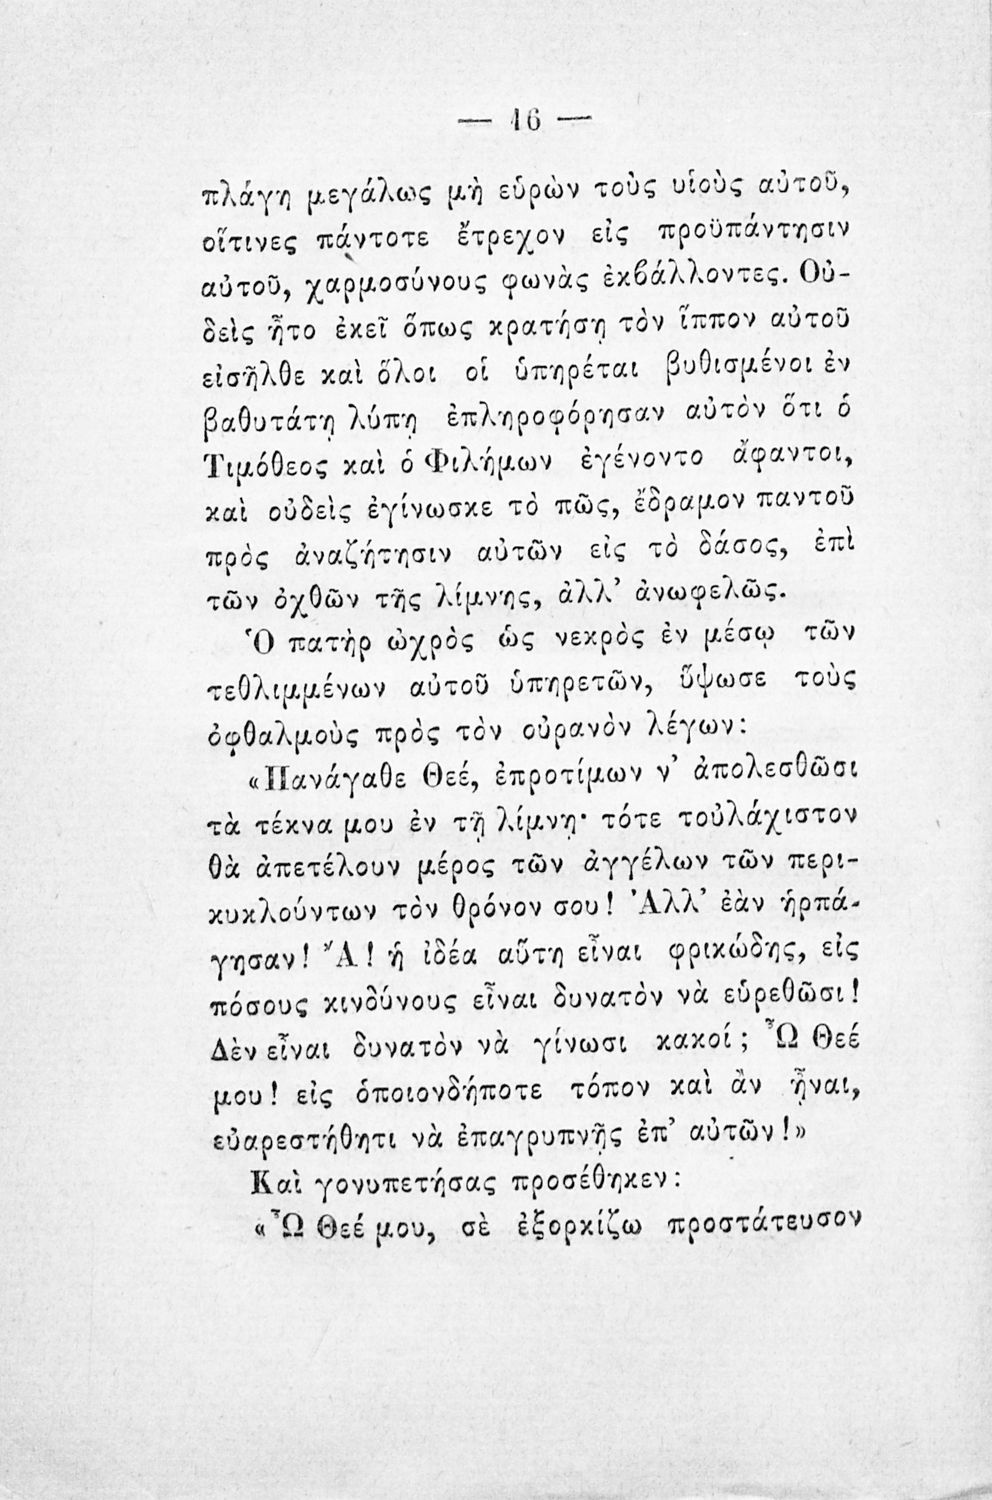 — 16 —
πλάγη μεγάλως μὴ εὑρὼν τοὺς υἱοὺς αὐτοῦ,
οἵτινες πάντοτε ἔτρεχον εἰς προϋπάντησιν
αὐτοῦ, χαρμοσύνους φωνὰς ἐκβάλλοντες. Οὐ-
δεὶς ἦτο ἐκεῖ ὅπως κρατήσῃ τὸν ἵππον αὐτοῦ
εἰσῆλθε καὶ ὅλοι οἱ ὑπηρέται βυθισμένοι ἐν
βαθυτάτῃ λύπῃ ἐπληροφόρησαν αὐτὸν ὅτι ὁ
Τιμόθεος καὶ ὁ Φιλήμων ἐγένοντο ἄφαντοι,
καὶ οὐδεὶς ἐγίνωσκε τὸ πῶς, ἔδραμον παντοῦ
πρὸς ἀναζήτησιν αὐτῶν εἰς τὸ δάσος, ἐπὶ
τῶν ὀχθῶν τῆς λίμνης, ἀλλ’ ἀνωφελῶς.
Ὁ πατὴρ ὠχρὸς ὡς νεκρὸς ἐν μέσῳ τῶν
τεθλιμμένων αὐτοῦ ὑπηρετῶν, ὕψωσε τοὺς
ὀφθαλμοὺς πρὸς τὸν οὐρανὸν λέγων:
«Πανάγαθε Θεέ, ἐπροτίμων ν’ ἀπολεσθῶσι
τὰ τέκνα μου ἐν τῇ λίμνῃ· τότε τοὐλάχιστον
θὰ ἀπετέλουν μέρος τῶν ἀγγέλων τῶν περι-
κυκλούντων τὸν θρόνον σου! Ἀλλ’ ἐὰν ἡρπά-
γησαν! Ἄ! ἡ ἰδέα αὕτη εἶναι φρικώδης, εἰς
πόσους κινδύνους εἶναι δυνατὸν νὰ εὑρεθῶσι!
Δὲν εἶναι δυνατὸν νὰ γίνωσι κακοί; Ὦ Θεέ
μου! εἰς ὁποιονδήποτε τόπον καὶ ἂν ᾖναι,
εὐαρεστήθητι νὰ ἐπαγρυπνῇς ἐπ’ αὐτῶν!»
Καὶ γονυπετήσας προσέθηκεν:
«Ὦ Θεέ μου, σὲ ἐξορκίζω προστάτευσον